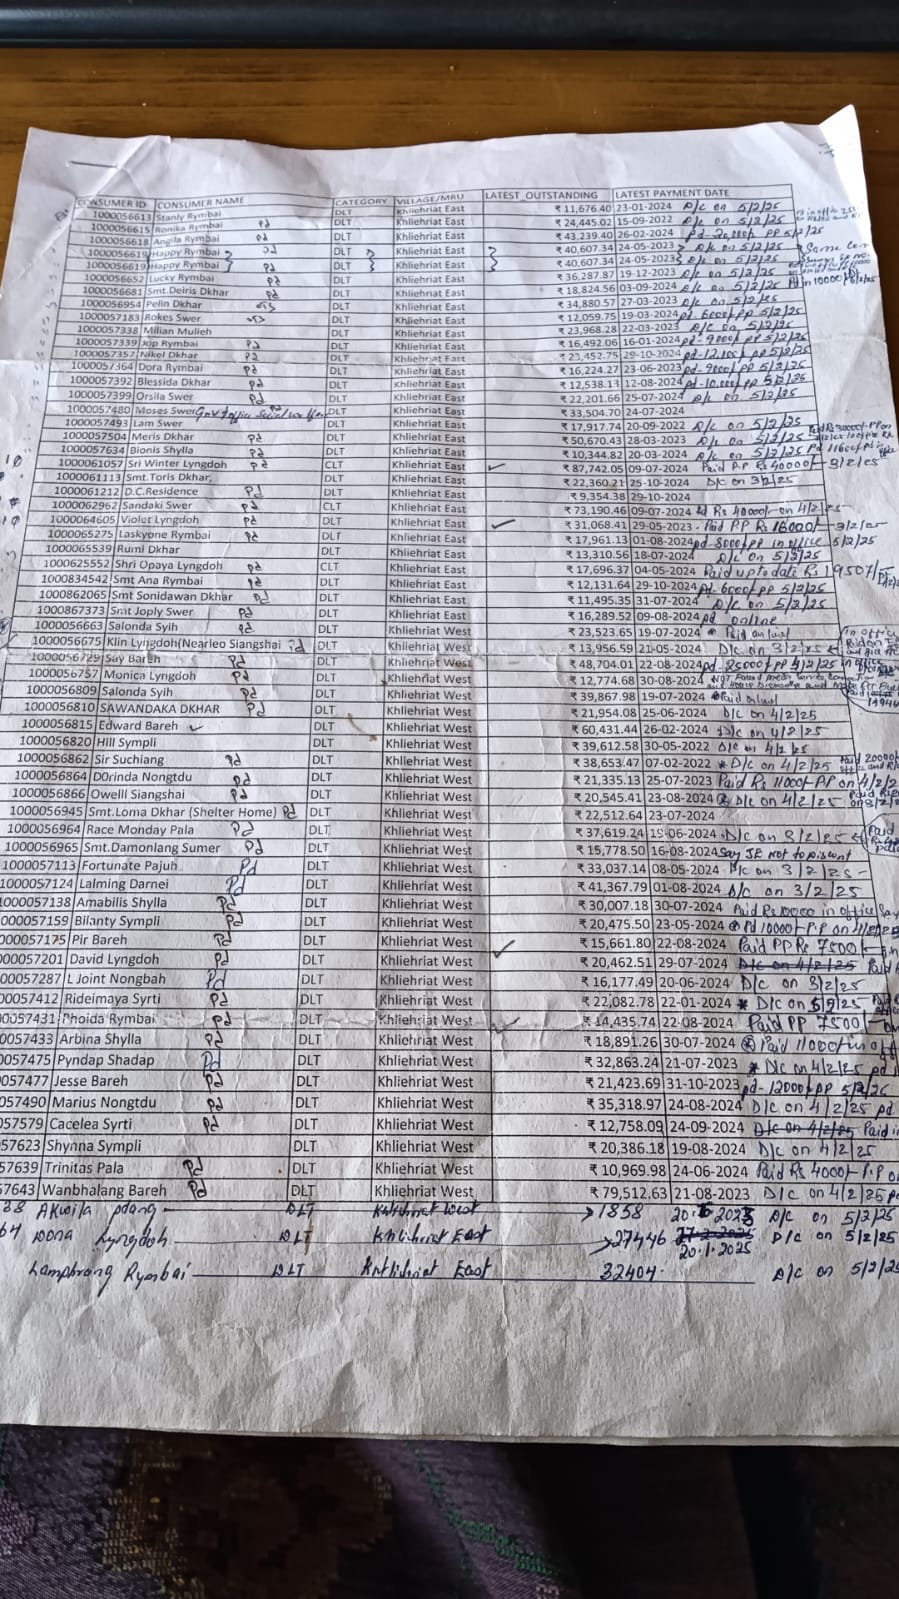 CONSUMER ID CONSUMER NAME CATEGORY VILLAGE/MRU LATEST_OUTSTANDING LATEST PAYMENT DATE
1000056613 Stanly Rymbai DLT Khliehriat East ₹ 11,676.40 23-01-2024 D/c on 5/2/25
1000056615 Ronika Rymbai pd DLT Khliehriat East ₹ 24,445.02 15-09-2022 D/c on 5/2/25
1000056618 Angila Rymbai pd DLT Khliehriat East ₹ 43,239.40 26-02-2024 pd-20,000/- PP 5/2/25
1000056619 Happy Rymbai pd DLT Khliehriat East ₹ 40,607.34 24-05-2023 D/c on 5/2/25 Same
1000056619 Happy Rymbai pd DLT Khliehriat East ₹ 40,607.34 24-05-2023 D/c on 5/2/25
1000056652 Lucky Rymbai pd DLT Khliehriat East ₹ 36,287.87 19-12-2023 D/c on 5/2/25
1000056681 Smt.Deiris Dkhar pd DLT Khliehriat East ₹ 18,824.56 03-09-2024 D/c on 5/2/25
1000056954 Pelin Dkhar DLT Khliehriat East ₹ 34,880.57 27-03-2023 D/c on 5/2/25
1000057183 Rokes Swer DLT Khliehriat East ₹ 12,059.75 19-03-2024 pd-6000/- PP 5/2/25
1000057338 Milian Mulieh DLT Khliehriat East ₹ 23,968.28 22-03-2023 D/c on 5/2/25
1000057339 Jop Rymbai pd DLT Khliehriat East ₹ 16,492.06 16-01-2024 pd-9000/- PP 5/2/25
1000057357 Nikel Dkhar pd DLT Khliehriat East ₹ 23,452.75 29-10-2024 pd-12,000/- PP 5/2/25
1000057364 Dora Rymbai pd DLT Khliehriat East ₹ 16,224.27 23-06-2023 pd-9000/- PP 5/2/25
1000057392 Blessida Dkhar pd DLT Khliehriat East ₹ 12,538.13 12-08-2024 pd-10,000/- PP 5/2/25
1000057399 Orsila Swer pd DLT Khliehriat East ₹ 22,201.66 25-07-2024 D/c on 5/2/25
1000057480 Moses Swer DLT Khliehriat East ₹ 33,504.70 24-07-2024
1000057493 Lam Swer pd DLT Khliehriat East ₹ 17,917.74 20-09-2022 D/c on 5/2/25
1000057504 Meris Dkhar pd DLT Khliehriat East ₹ 50,670.43 28-03-2023 D/c on 5/2/25
1000057634 Bionis Shylla pd DLT Khliehriat East ₹ 10,344.82 20-03-2024 D/c on 5/2/25
1000061057 Sri Winter Lyngdoh pd CLT Khliehriat East ₹ 87,742.05 09-07-2024 Paid P.P Rs 40000/- 3/2/25
1000061113 Smt.Toris Dkhar. DLT Khliehriat East ₹ 22,360.21 25-10-2024 D/c on 3/2/25
1000061212 D.C.Residence pd DLT Khliehriat East ₹ 9,354.38 29-10-2024
1000062962 Sandaki Swer pd CLT Khliehriat East ₹ 73,190.46 09-07-2024 Rs 40000/- on 4/2/25
1000064605 Violut Lyngdoh pd DLT Khliehriat East ₹ 31,068.41 29-05-2023 Paid PP Rs 16000/- 3/2/25
1000065275 Laskyone Rymbai pd DLT Khliehriat East ₹ 17,961.13 01-08-2024 pd-8000/- PP in office 5/2/25
1000065539 Rumi Dkhar DLT Khliehriat East ₹ 13,310.56 18-07-2024 D/c on 5/2/25
1000625552 Shri Opaya Lyngdoh pd CLT Khliehriat East ₹ 17,696.37 04-05-2024 Paid upto date Rs 19507/-
1000834542 Smt Ana Rymbai pd DLT Khliehriat East ₹ 12,131.64 29-10-2024 pd-6000/- PP 5/2/25
1000862065 Smt Sonidawan Dkhar pd DLT Khliehriat East ₹ 11,495.35 31-07-2024 D/c on 5/2/25
1000867373 Smt Joply Swer pd DLT Khliehriat East ₹ 16,289.52 09-08-2024 pd online
1000056663 Salonda Syih pd DLT Khliehriat West ₹ 23,523.65 19-07-2024
1000056675 Klin Lyngdoh(Nearleo Siangshai pd DLT Khliehriat West ₹ 13,956.59 21-05-2024 D/c on 3/2/25
1000056729 Suy Bareh pd DLT Khliehriat West ₹ 48,704.01 22-08-2024 pd-25000/- PP 4/2/25 in office
1000056757 Monica Lyngdoh pd DLT Khliehriat West ₹ 12,774.68 30-08-2024
1000056809 Salonda Syih pd DLT Khliehriat West ₹ 39,867.98 19-07-2024
1000056810 SAWANDAKA DKHAR pd DLT Khliehriat West ₹ 21,954.08 25-06-2024 D/c on 4/2/25
1000056815 Edward Bareh DLT Khliehriat West ₹ 60,431.44 26-02-2024 D/c on 4/2/25
1000056820 Hill Sympli DLT Khliehriat West ₹ 39,612.58 30-05-2022 D/c on 4/2/25
1000056862 Sir Suchiang pd DLT Khliehriat West ₹ 38,653.47 07-02-2022 * D/c on 4/2/25
1000056864 D0rinda Nongtdu pd DLT Khliehriat West ₹ 21,335.13 25-07-2023 Paid Rs 11000/- PP on 4/2/2
1000056866 Owelli Siangshai pd DLT Khliehriat West ₹ 20,545.41 23-08-2024 D/c on 4/2/25
1000056945 Smt.Loma Dkhar (Shelter Home) pd DLT Khliehriat West ₹ 22,512.64 23-07-2024
1000056964 Race Monday Pala pd DLT Khliehriat West ₹ 37,619.24 19-06-2024 D/c on 3/2/25
1000056965 Smt.Damonlang Sumer pd DLT Khliehriat West ₹ 15,778.50 16-08-2024 Say JE Not to Disconnt
1000057113 Fortunate Pajuh pd DLT Khliehriat West ₹ 33,037.14 08-05-2024 D/c on 3/2/25
1000057124 Lalming Darnei pd DLT Khliehriat West ₹ 41,367.79 01-08-2024 D/c on 3/2/25
000057138 Amabilis Shylla pd DLT Khliehriat West ₹ 30,007.18 30-07-2024 Paid Rs 10000 in office
000057159 Bilanty Sympli pd DLT Khliehriat West ₹ 20,475.50 23-05-2024 Pd 10000/- P.P on 4/2/25
000057175 Pir Bareh pd DLT Khliehriat West ₹ 15,661.80 22-08-2024 Paid PP Rs 7500/-
000057201 David Lyngdoh pd DLT Khliehriat West ₹ 20,462.51 29-07-2024 D/c on 4/2/25 Paid
00057287 L Joint Nongbah pd DLT Khliehriat West ₹ 16,177.49 20-06-2024 D/c on 3/2/25
00057412 Rideimaya Syrti pd DLT Khliehriat West ₹ 22,082.78 22-01-2024 * D/c on 5/2/25
00057431 Phoida Rymbai pd DLT Khliehriat West ₹ 14,435.74 22-08-2024 Paid PP 7500/-
0057433 Arbina Shylla pd DLT Khliehriat West ₹ 18,891.26 30-07-2024 Paid 11000/-
0057475 Pyndap Shadap pd DLT Khliehriat West ₹ 32,863.24 21-07-2023 * D/c on 4/2/25 pd
057477 Jesse Bareh pd DLT Khliehriat West ₹ 21,423.69 31-10-2023 pd-12000/- PP 5/2/25
057490 Marius Nongtdu pd DLT Khliehriat West ₹ 35,318.97 24-08-2024 D/c on 4/2/25 pd
057579 Cacelea Syrti pd DLT Khliehriat West ₹ 12,758.09 24-09-2024 D/c on 4/2/25 Paid in
57623 Shynna Sympli DLT Khliehriat West ₹ 20,386.18 19-08-2024 D/c on 4/2/25
57639 Trinitas Pala pd DLT Khliehriat West ₹ 10,969.98 24-06-2024 Paid Rs 4000/- P.P on
57643 Wanbhalang Bareh pd DLT Khliehriat West ₹ 79,512.63 21-08-2023 D/c on 4/2/25
Akwila DLT Khliehriat West 1858 D/c on 5/2/25
Dona Lyngdoh DLT Khliehriat East 27446 20.1.2025 D/c on 5/2/25
Lamphrang Rymbai DLT Khliehriat East 32404. D/c on 5/2/25